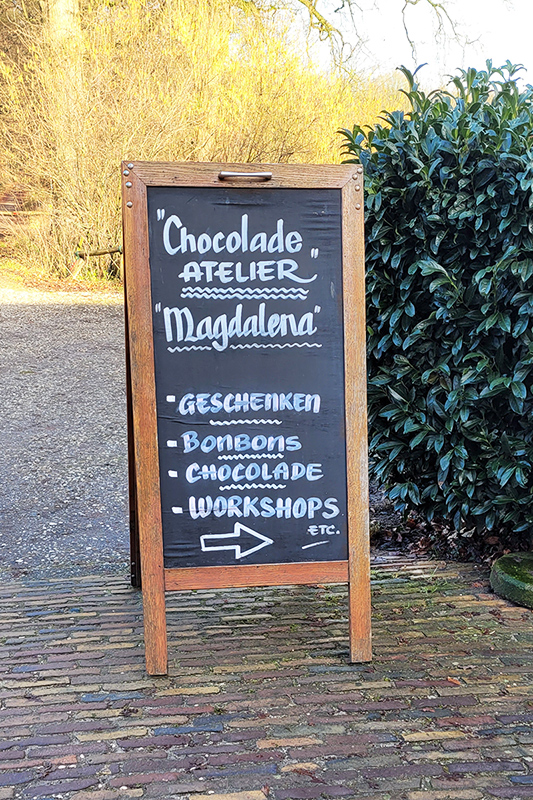 "Chocolade
ATELIER"
"Magdalena"
- GESCHENKEN
- BONBONS
- CHOCOLADE
- WORKSHOPS
ETC.